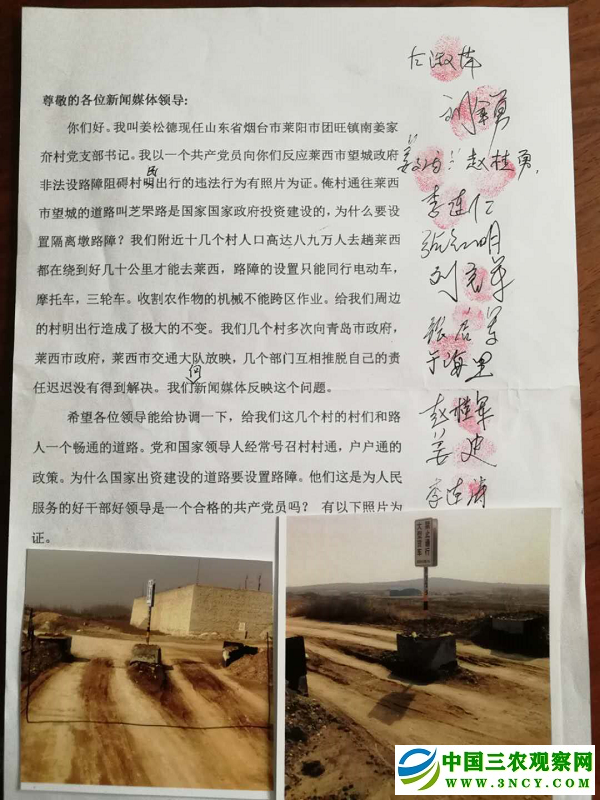 尊敬的各位新闻媒体领导:
你们好。我叫姜松德现任山东省烟台市莱阳市团旺镇南姜家
夼村党支部书记。我以一个共产党员向你们反应莱西市望城政府
非法设路障阻碍村民出行的违法行为有照片为证。俺村通往莱西
市望城的道路叫芝罘路是国家国家政府投资建设的,为什么要设
置隔离墩路障?我们附近十几个村人口高达八九万人去趟莱西
都在绕到好几十公里才能去莱西,路障的设置只能同行电动车,
摩托车,三轮车。收割农作物的机械不能跨区作业。给我们周边
的村明出行造成了极大的不变。我们几个村多次向青岛市政府,
莱西市政府,莱西市交通大队放映,几个部门互相推脱自己的责
任迟迟没有得到解决。我们向新闻媒体反映这个问题。
希望各位领导能给协调一下,给我们这几个村的村们和路
人一个畅通的道路。党和国家领导人经常号召村村通,户户通的
政策。为什么国家出资建设的道路要设置路障。他们这是为人民
服务的好干部好领导是一个合格的共产党员吗? 有以下照片为
证。
赵桂勇
李连仁
张红明
于海里
赵桂军
禁止通行
大型货车
中国三农观察网
WWW.3NCY.COM